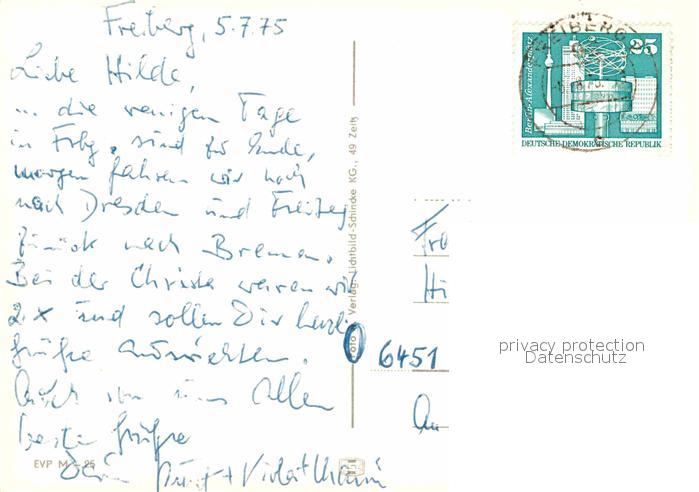 Freiberg, 5.7.75
Liebe Hilde,
... die wenigen Tage
in Frbg. sind zu Ende,
morgen fahren wir noch
nach Dresden und Freitag
zurück nach Bremen.
Bei der Christa waren wir
2x und sollen Dir herzl.
Grüße ausrichten.
Auch von uns Allen
beste Grüße
Foto u. Verlag: Lichtbild-Schincke KG., 49 Zeitz
EVP M -.25
FREIBERG
25
Berlin-Alexanderplatz
DEUTSCHE DEMOKRATISCHE REPUBLIK
Fra
Hi
6451
An
privacy protection
Datenschutz